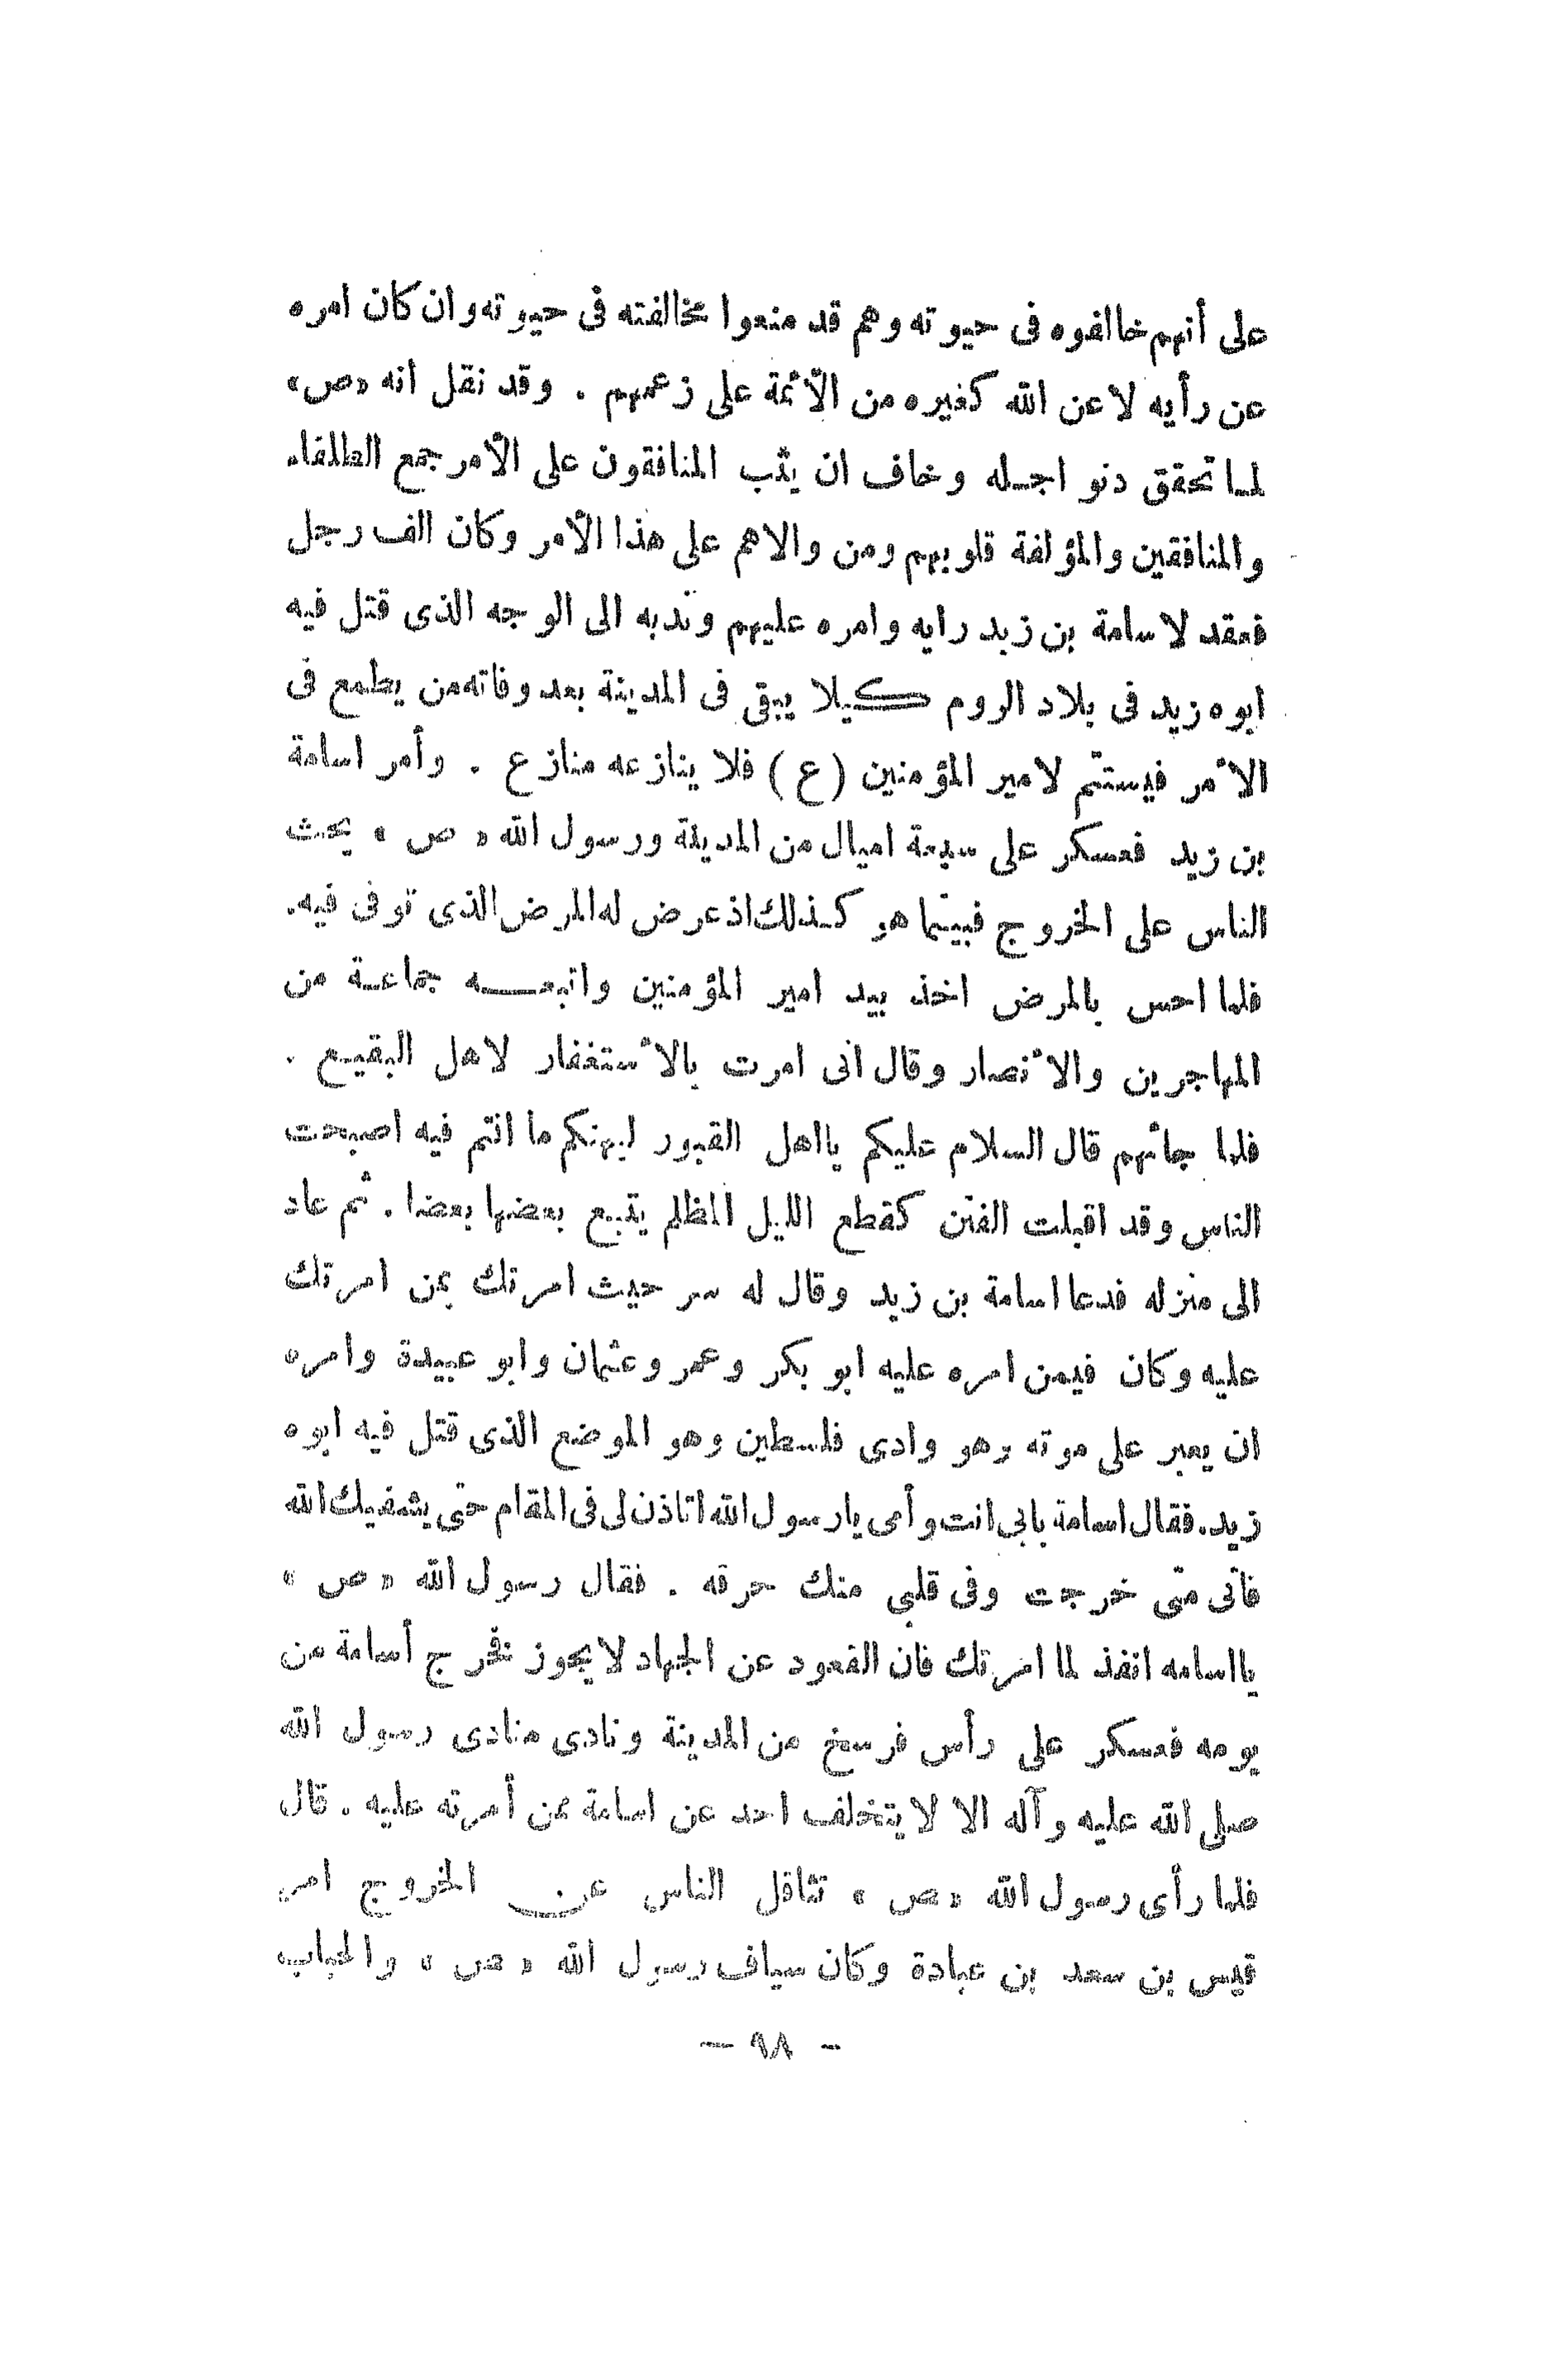 على أنهم خالفوه فى حيوته وهم قد منعوا مخالفته فى حيوته وان كان امره
عن رأيه لا عن الله كغيره من الأئمة على زعمهم . وقد نقل انه «ص»
لما تحقق دنو اجله وخاف ان يثب المنافقون على الأمر جمع الطلقاء
والمنافقين والمؤلفة قلوبهم ومن والاهم على هذا الأمر وكان الف رجل
فعقد لاسامة بن زيد رايه وامره عليهم وندبه الى الوجه الذى قتل فيه
ابوه زيد فى بلاد الروم كيلا يبقى فى المدينة بعد وفاته من يطمع فى
الأمر فيستتم لامير المؤمنين (ع) فلا ينازعه منازع . وأمر اسامة
بن زيد فعسكر على سبعة اميال من المدينة ورسول الله «ص» يحث
الناس على الخروج فبينما هو كذلك اذ عرض له المرض الذى توفى فيه.
فلما احس بالمرض اخذ بيد امير المؤمنين واتبعه جماعة من
المهاجرين والأنصار وقال انى امرت بالأستغفار لاهل البقيع .
فلما جائهم قال السلام عليكم يااهل القبور ليهنكم ما انتم فيه اصبحت
الناس وقد اقبلت الفتن كقطع الليل المظلم يتبع بعضها بعضا . ثم عاد
الى منزله فدعا اسامة بن زيد وقال له سر حيث امرتك بمن امرتك
عليه وكان فيمن امره عليه ابو بكر وعمر وعثمان وابو عبيدة وامره
ان يعبر على موته وهو وادى فلسطين وهو الموضع الذى قتل فيه ابوه
زيد.فقال اسامة بابى انت وأمى يارسول الله اتاذن لى فى المقام حتى يشفيك الله
فانى متى خرجت وفى قلبى منك حرقه . فقال رسول الله «ص»
يااسامه انفذ لما امرتك فان القعود عن الجهاد لا يجوز نخرج أسامة من
يومه فعسكر على رأس فرسخ من المدينة ونادى منادى رسول الله
صلى الله عليه وآله الا لا يتخلف احد عن اسامة ممن أمرته عليه . قال
فلما رأى رسول الله «ص» تثاقل الناس عن الخروج امر
قيس بن سعد بن عبادة وكان سياف رسول الله «ص» والحباب
- ٩٨ -